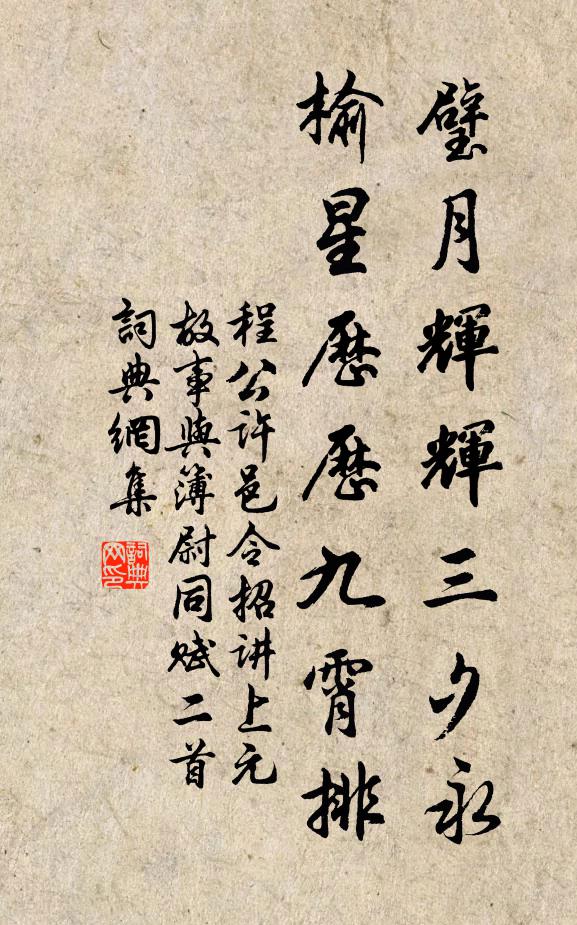 璧月輝輝三夕永
榆星歷歷九霄排
程公許邑令招讲上元
故事與簿尉同赋二首
詞典網集
詞典網印